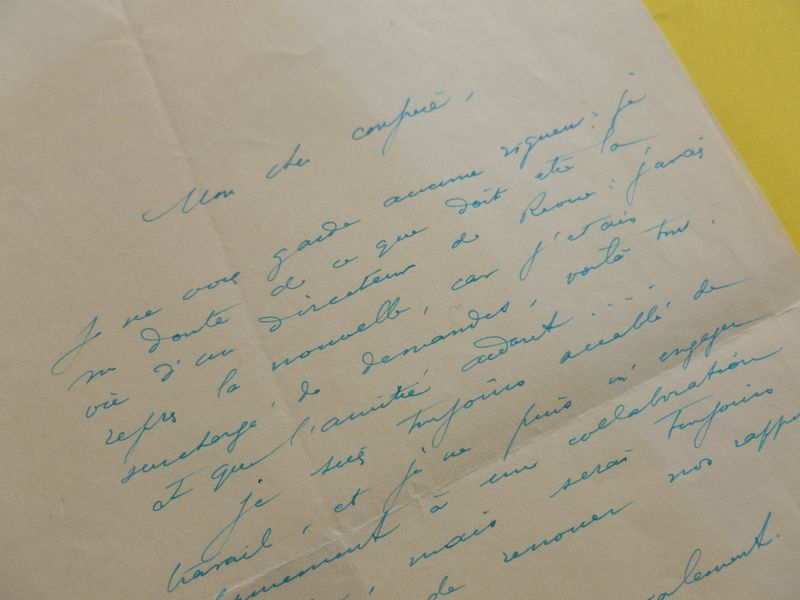 Mon cher confrère,
Je ne vous garde aucune rigueur : je
me doute de ce que doit être la
vie d'un directeur de Revue : j'avais
repris la nouvelle, car j'étais
surchargé de demandes, voilà tout.
Et que l'amitié aidant ....
Je suis toujours accablé de
travail, et je ne puis m'engager
à une collaboration
, mais serai toujours
de renouer nos rapp